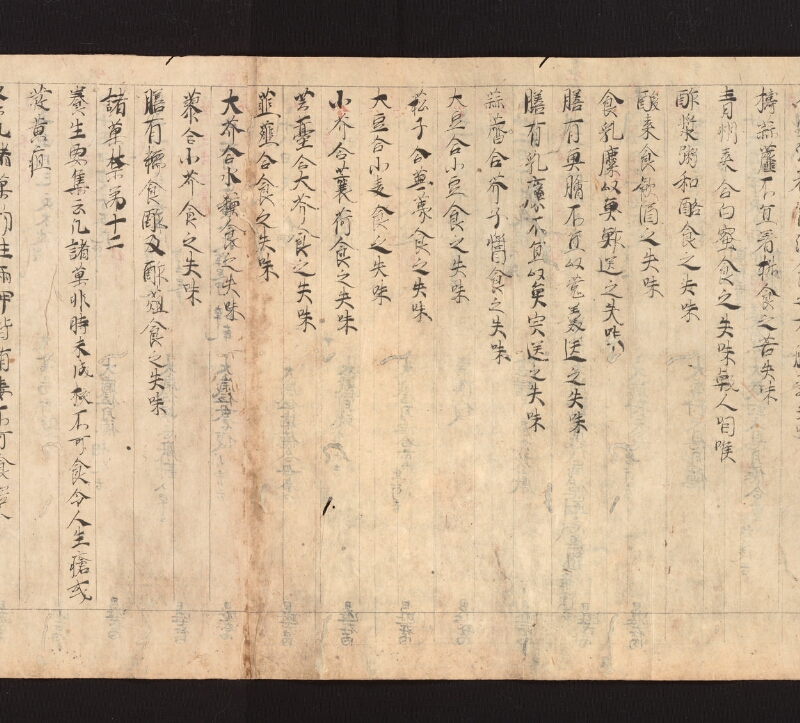 擣蒜韲不宜著椒食之苦失味
青州棗合白蜜食之失味戟人咽喉
酢漿粥和酪食之失味
酸棗食飲酒之失味
食乳糜以魚鮓送之失味
膳有魚膾不宜以菟羹送之失味
膳有乳糜不宜以魚宍送之失味
蒜韲合芥子醬食之失味
大豆合小豆食之失味
菘子合蕪菁食之失味
大豆合小麦食之失味
小芥合蘘荷食之失味
芸薹合大芥食之失味
韮薤合食之失味
大芥合水蘇食之失味
蓼合小芥食之失味
膳有糯食酢又酢葅食之失味
諸菓禁第十二
養生要集云凡諸菓非時未成核不可食令人生瘡或
發黄疸